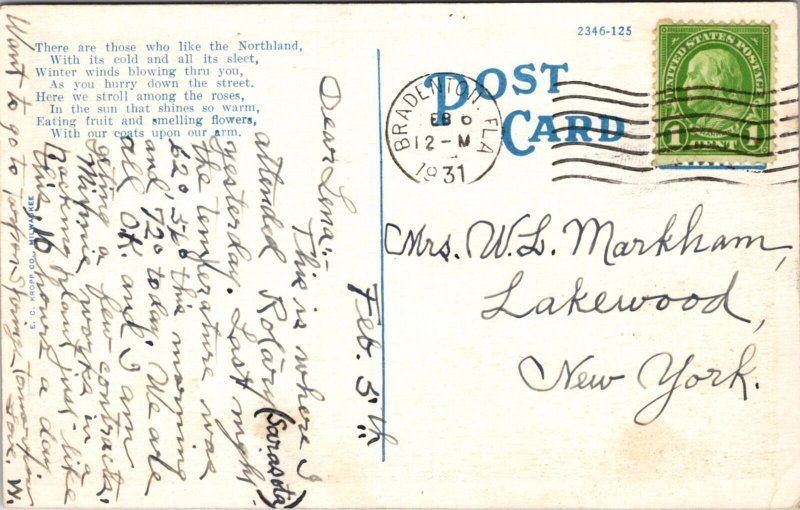 There are those who like the Northland,
With its cold and all its sleet,
Winter winds blowing thru you,
As you hurry down the street.
Here we stroll among the roses,
In the sun that shines so warm,
Eating fruit and smelling flowers,
With our coats upon our arm.
2346-125
POST
CARD
BRADENTON, FLA
FEB 6
12-M
1931
UNITED STATES POSTAGE
1 CENT 1
Mrs. W. L. Markham,
Lakewood,
New York.
E. C. KROPP CO., MILWAUKEE
Feb. 5th
Dear Lena:-
This is where I
attended Rotary (Sarasota)
yesterday. Last night
the temperature was
62°, 52° this morning
and 72° today. We are
all OK. and I am
getting a few contracts.
Minnie works in a
Packing plant just like
this, 10 hours a day
Want to go to Tarpon Springs tomorrow
Love, W.